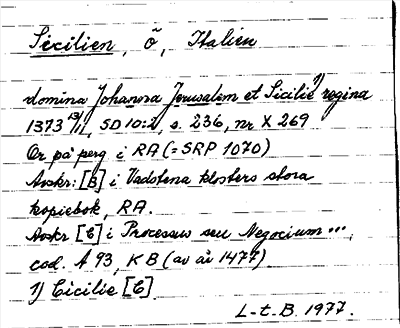 Sicilien, ö, Italien
domina Johanna Jerusalem et Sicilie 1) regina
1373 13/11, SD 10:2, s. 236, nr X 269
Or på perg i RA (= SRP 1070)
Avskr: [B] i Vadstena klosters stora
kopiebok, RA.
Avskr [C] i Processus seu Negocium ...,
cod. A 93, KB (av år 1477)
1) Cicilie [C]
L-t-B. 1977.